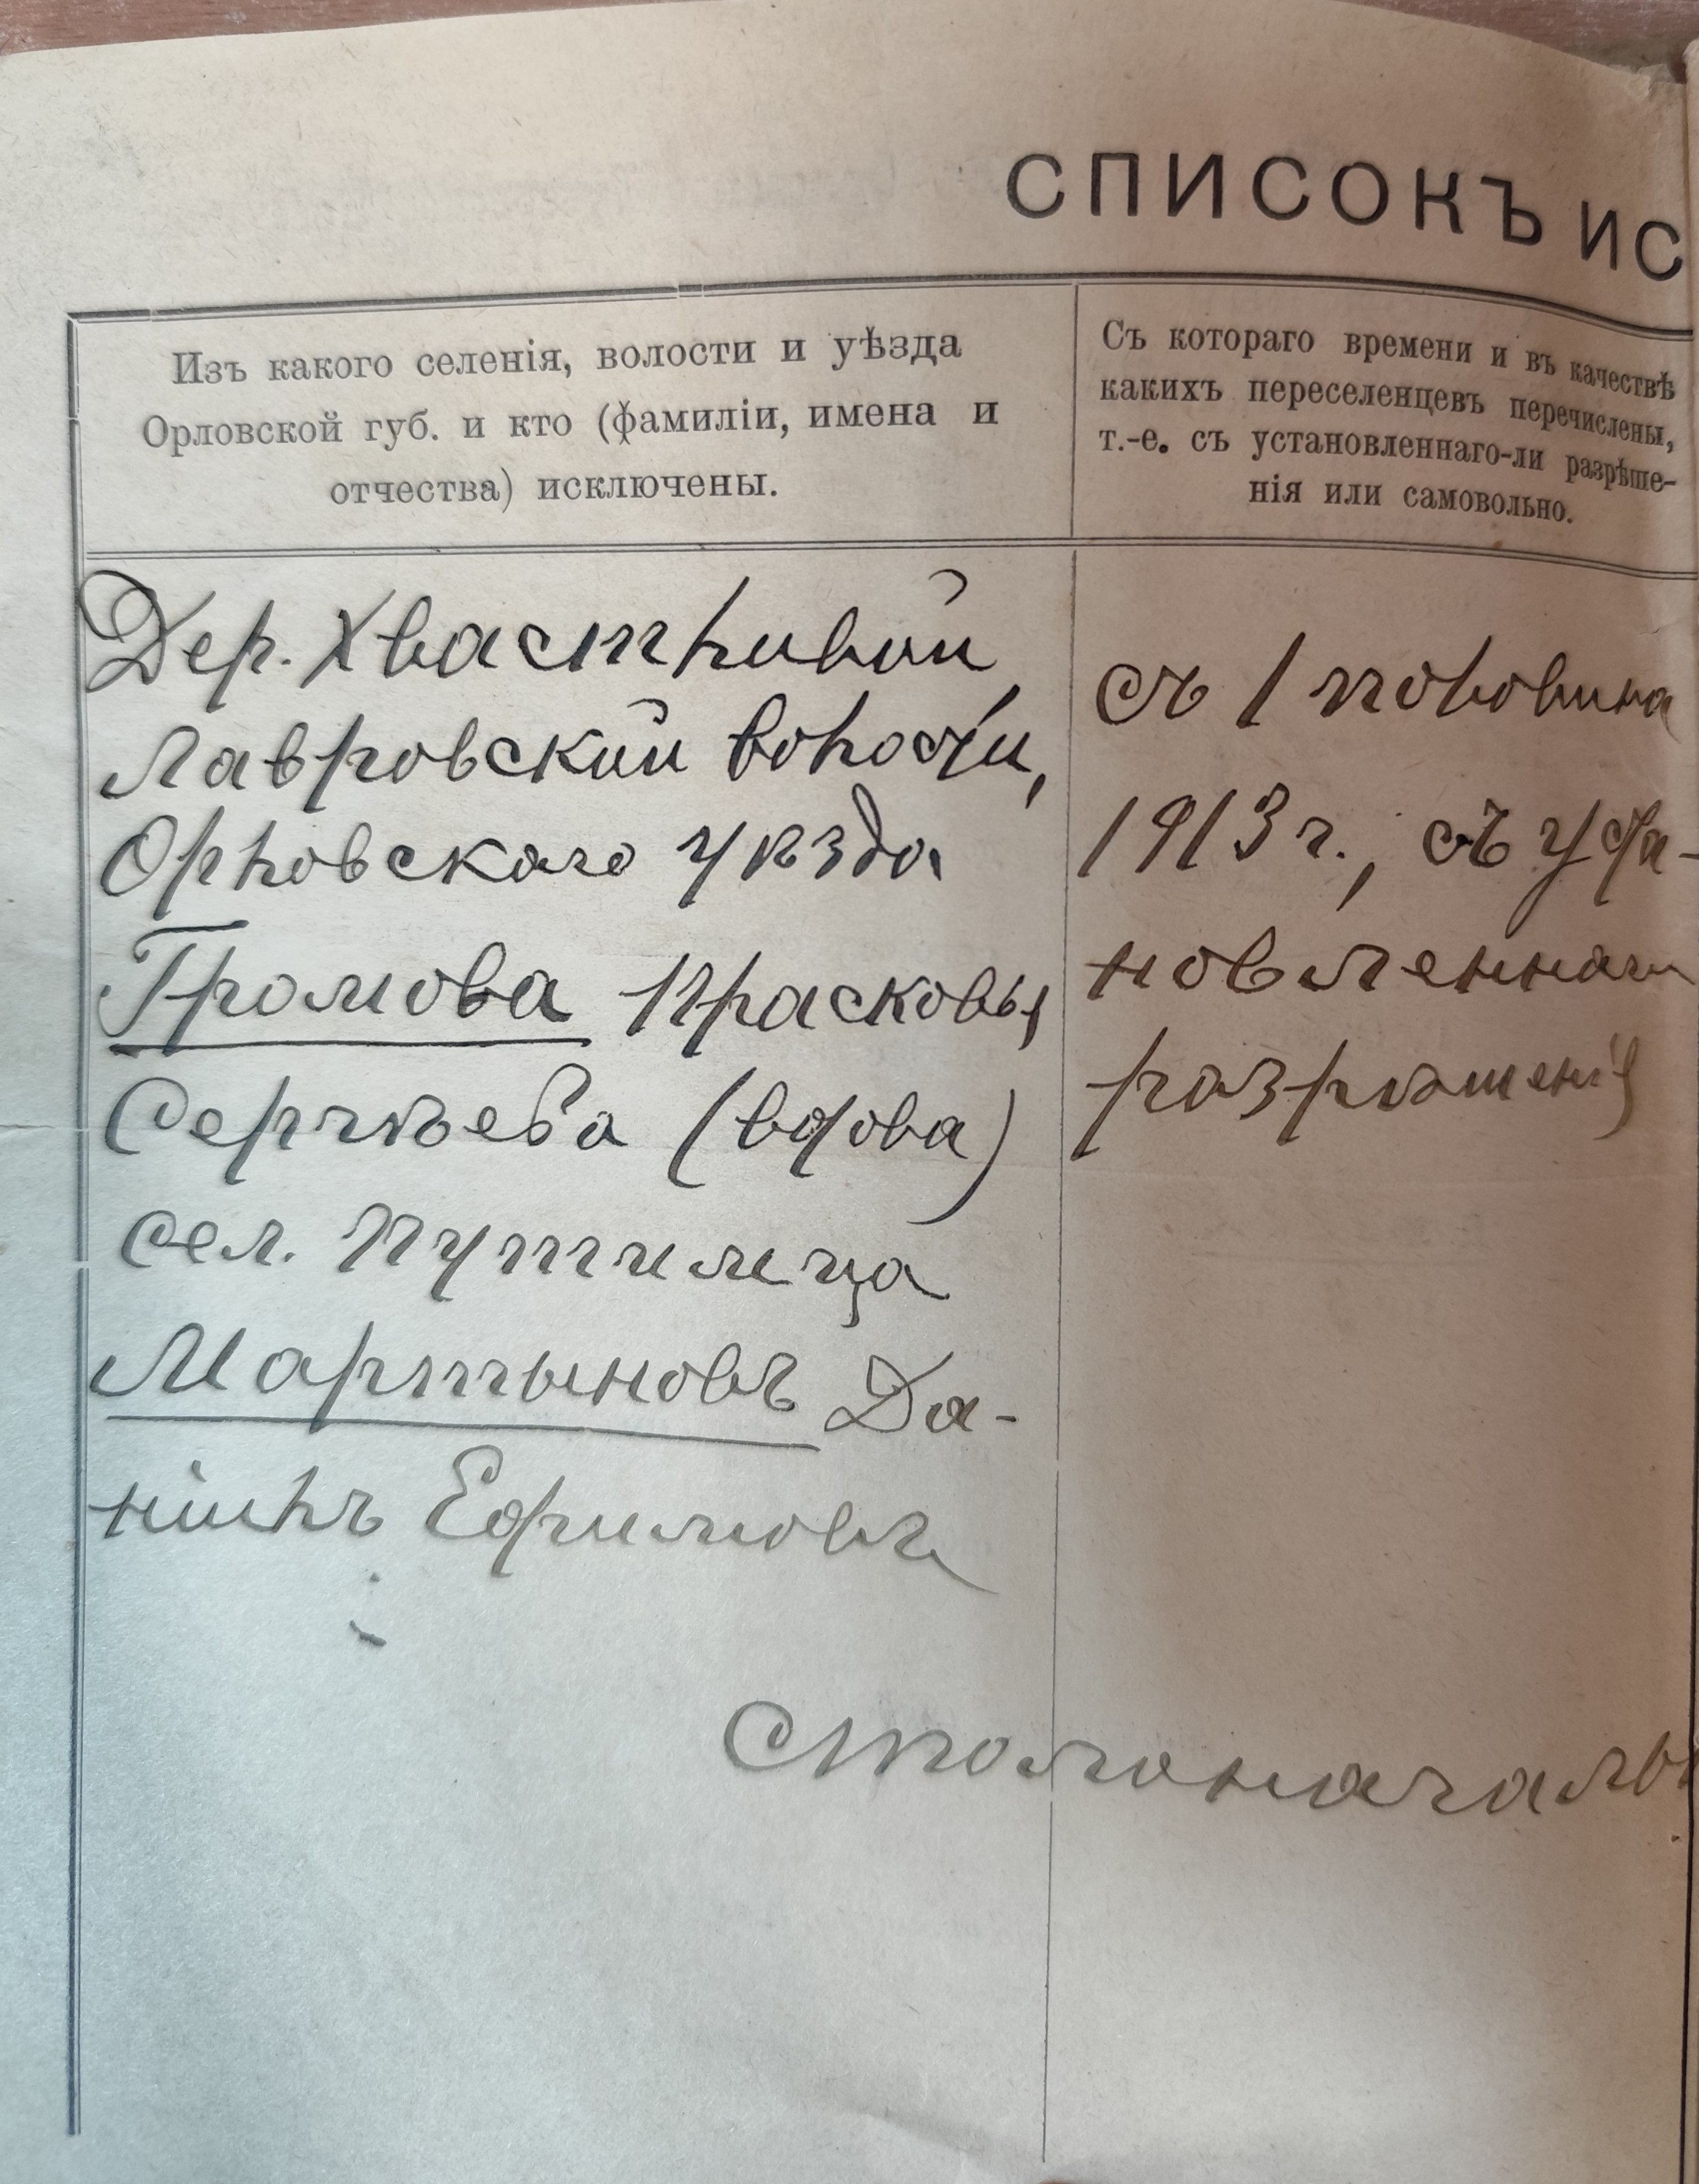 СПИСОКЪ ИС
Изъ какого селенія, волости и уѣзда
Орловской губ. и кто (фамиліи, имена и
отчества) исключены.
Съ котораго времени и въ качествѣ
какихъ переселенцевъ перечислены,
т.-е. съ установленнаго-ли разрѣше-
нія или самовольно.
Дер. Хвастливой
Лавровской волости,
Орловскаго уѣзда
Громова Прасковья
Сергѣева (вдова)
сел. Путимца
Мартыновъ Да-
ніилъ Ефимовъ
съ 1 половина
1913 г., съ уста-
новленнаго
разрѣшенія
Столоначаль